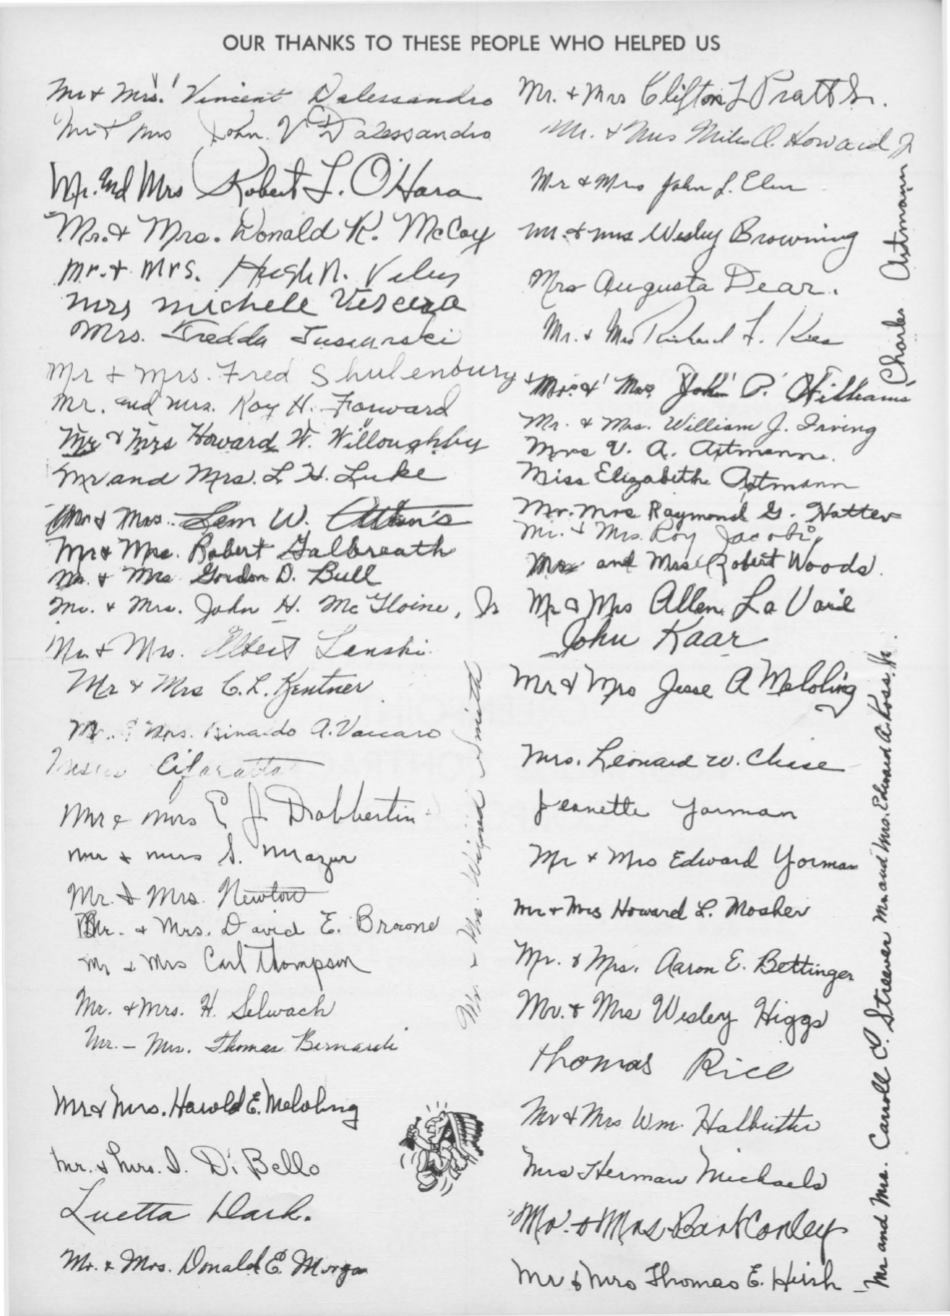 OUR THANKS TO THESE PEOPLE WHO HELPED US
Mr & Mrs. Vincent Dalessandro
Mr & Mrs John V. Dalessandro
Mr. and Mrs Robert L. O'Hara
Mr. & Mrs. Donald K. McCoy
Mr. & Mrs. Hugh N.
Mrs Michele Verceza
Mrs. Fredda
Mr & Mrs. Fred Shulenburg
Mr. and Mrs. Roy H. Forward
Mr & Mrs Howard W. Willoughby
Mr and Mrs. L H. Luke
Mr & Mrs. Lem W.
Mr & Mrs. Robert Galbreath
Mr. & Mrs Gordon D. Bull
Mr. & Mrs. John H. McGloine, Jr
Mr. & Mrs. Albert Lanski
Mr & Mrs C. L. Kentner
Mr. & Mrs. Rinaldo A. Vaccaro
Cifaratta
Mr & Mrs E J. Dabbertin
Mr & Mrs S. Mazur
Mr. & Mrs. Newton
Mr. & Mrs. David E. Broone
Mr & Mrs Carl Thompson
Mr. & Mrs. H. Selwach
Mr. - Mrs. Thomas Bernardi
Mr & Mrs. Harold E. Meloling
Mr. & Mrs. D. Di Bello
Luetta Dark.
Mr. & Mrs. Donald E. Morgan
Mr. - Mrs. Smith
Mr. & Mrs Clifton L Pratt Sr.
Mr. & Mrs Miles O. Howard Jr
Mr & Mrs John L. Elm
Mr. & Mrs Wesley Browning
Mrs Augusta Dear.
Mr. & Mrs Richard F. Kees
Mr. & Mrs John P. Williams
Mr. & Mrs. William J. Irving
Mrs V. A. Artmann.
Miss Elizabeth Artmann
Mr. Mrs Raymond G. Hatter
Mr. & Mrs. Roy Jacobi,
Mr and Mrs. Robert Woods.
Mr & Mrs Allen La Varie
John Kaar
Mr & Mrs Jesse A Meloling
Mrs. Leonard W. Chase
Jeanette Yorman
Mr & Mrs Edward Yorman
Mr & Mrs Howard L. Mosher
Mr. & Mrs. Aaron E. Bettinger
Mr. & Mrs Wesley Higgs
Thomas Rice
Mr & Mrs Wm. Halbritter
Mrs Herman Michaels
Mr. & Mrs Bart Conley
Mr & Mrs Thomas E. Hirsh
Charles Artmann
Mr and Mrs. Carroll C. Streever Mr and Mrs. Edward A. Rose, Jr.